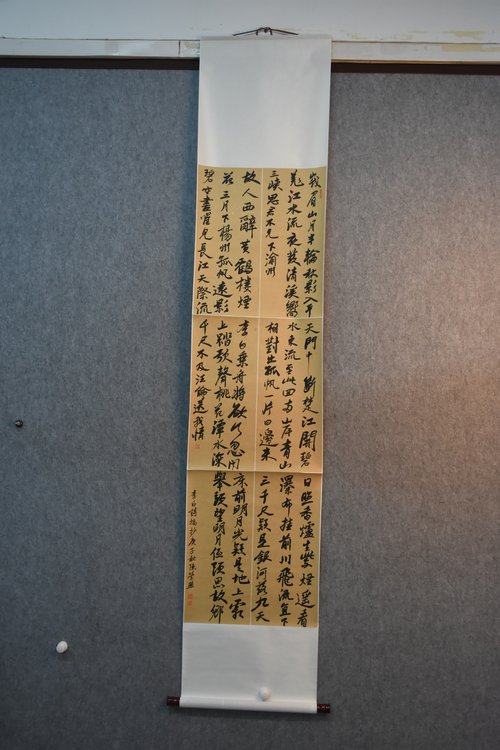 峩眉山月半輪秋影入平
羌江水流夜發清溪嚮
三峡思君不见下渝州
故人西辭黄鶴樓煙
花三月下楊州孤帆遠影
碧空盡惟见長江天際流
天門中断楚江開碧
水東流至此回两岸青山
相對出孤帆一片日邊来
李白乗舟将欲行忽闻
上踏歌聲桃花潭水深
千尺不及汪倫送我情
日照香爐生紫煙遥看
瀑布挂前川飛流直下
三千尺疑是銀河落九天
床前明月光疑是地上霜
舉頭望明月低頭思故鄉
李白詩摘抄庚子秋張